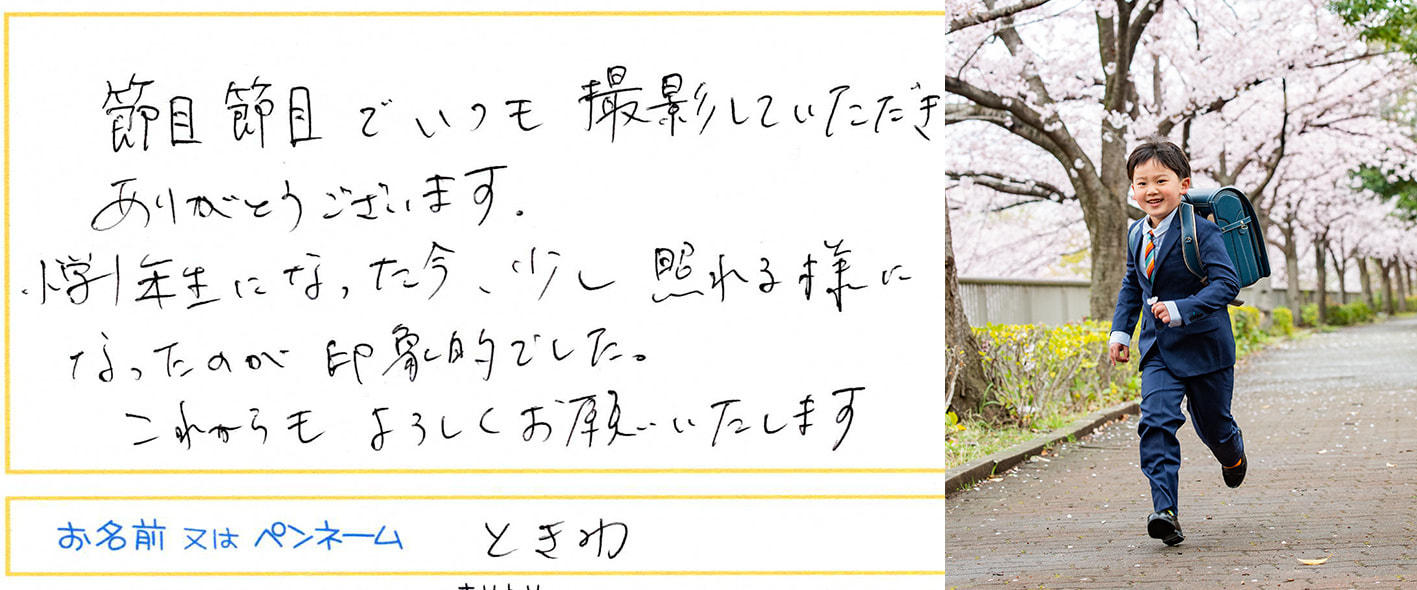 節目節目でいつも撮影していただき
ありがとうございます。
小学1年生になった今、少し照れる様に
なったのが印象的でした。
これからもよろしくお願いいたします
お名前 又は ペンネーム ときわ